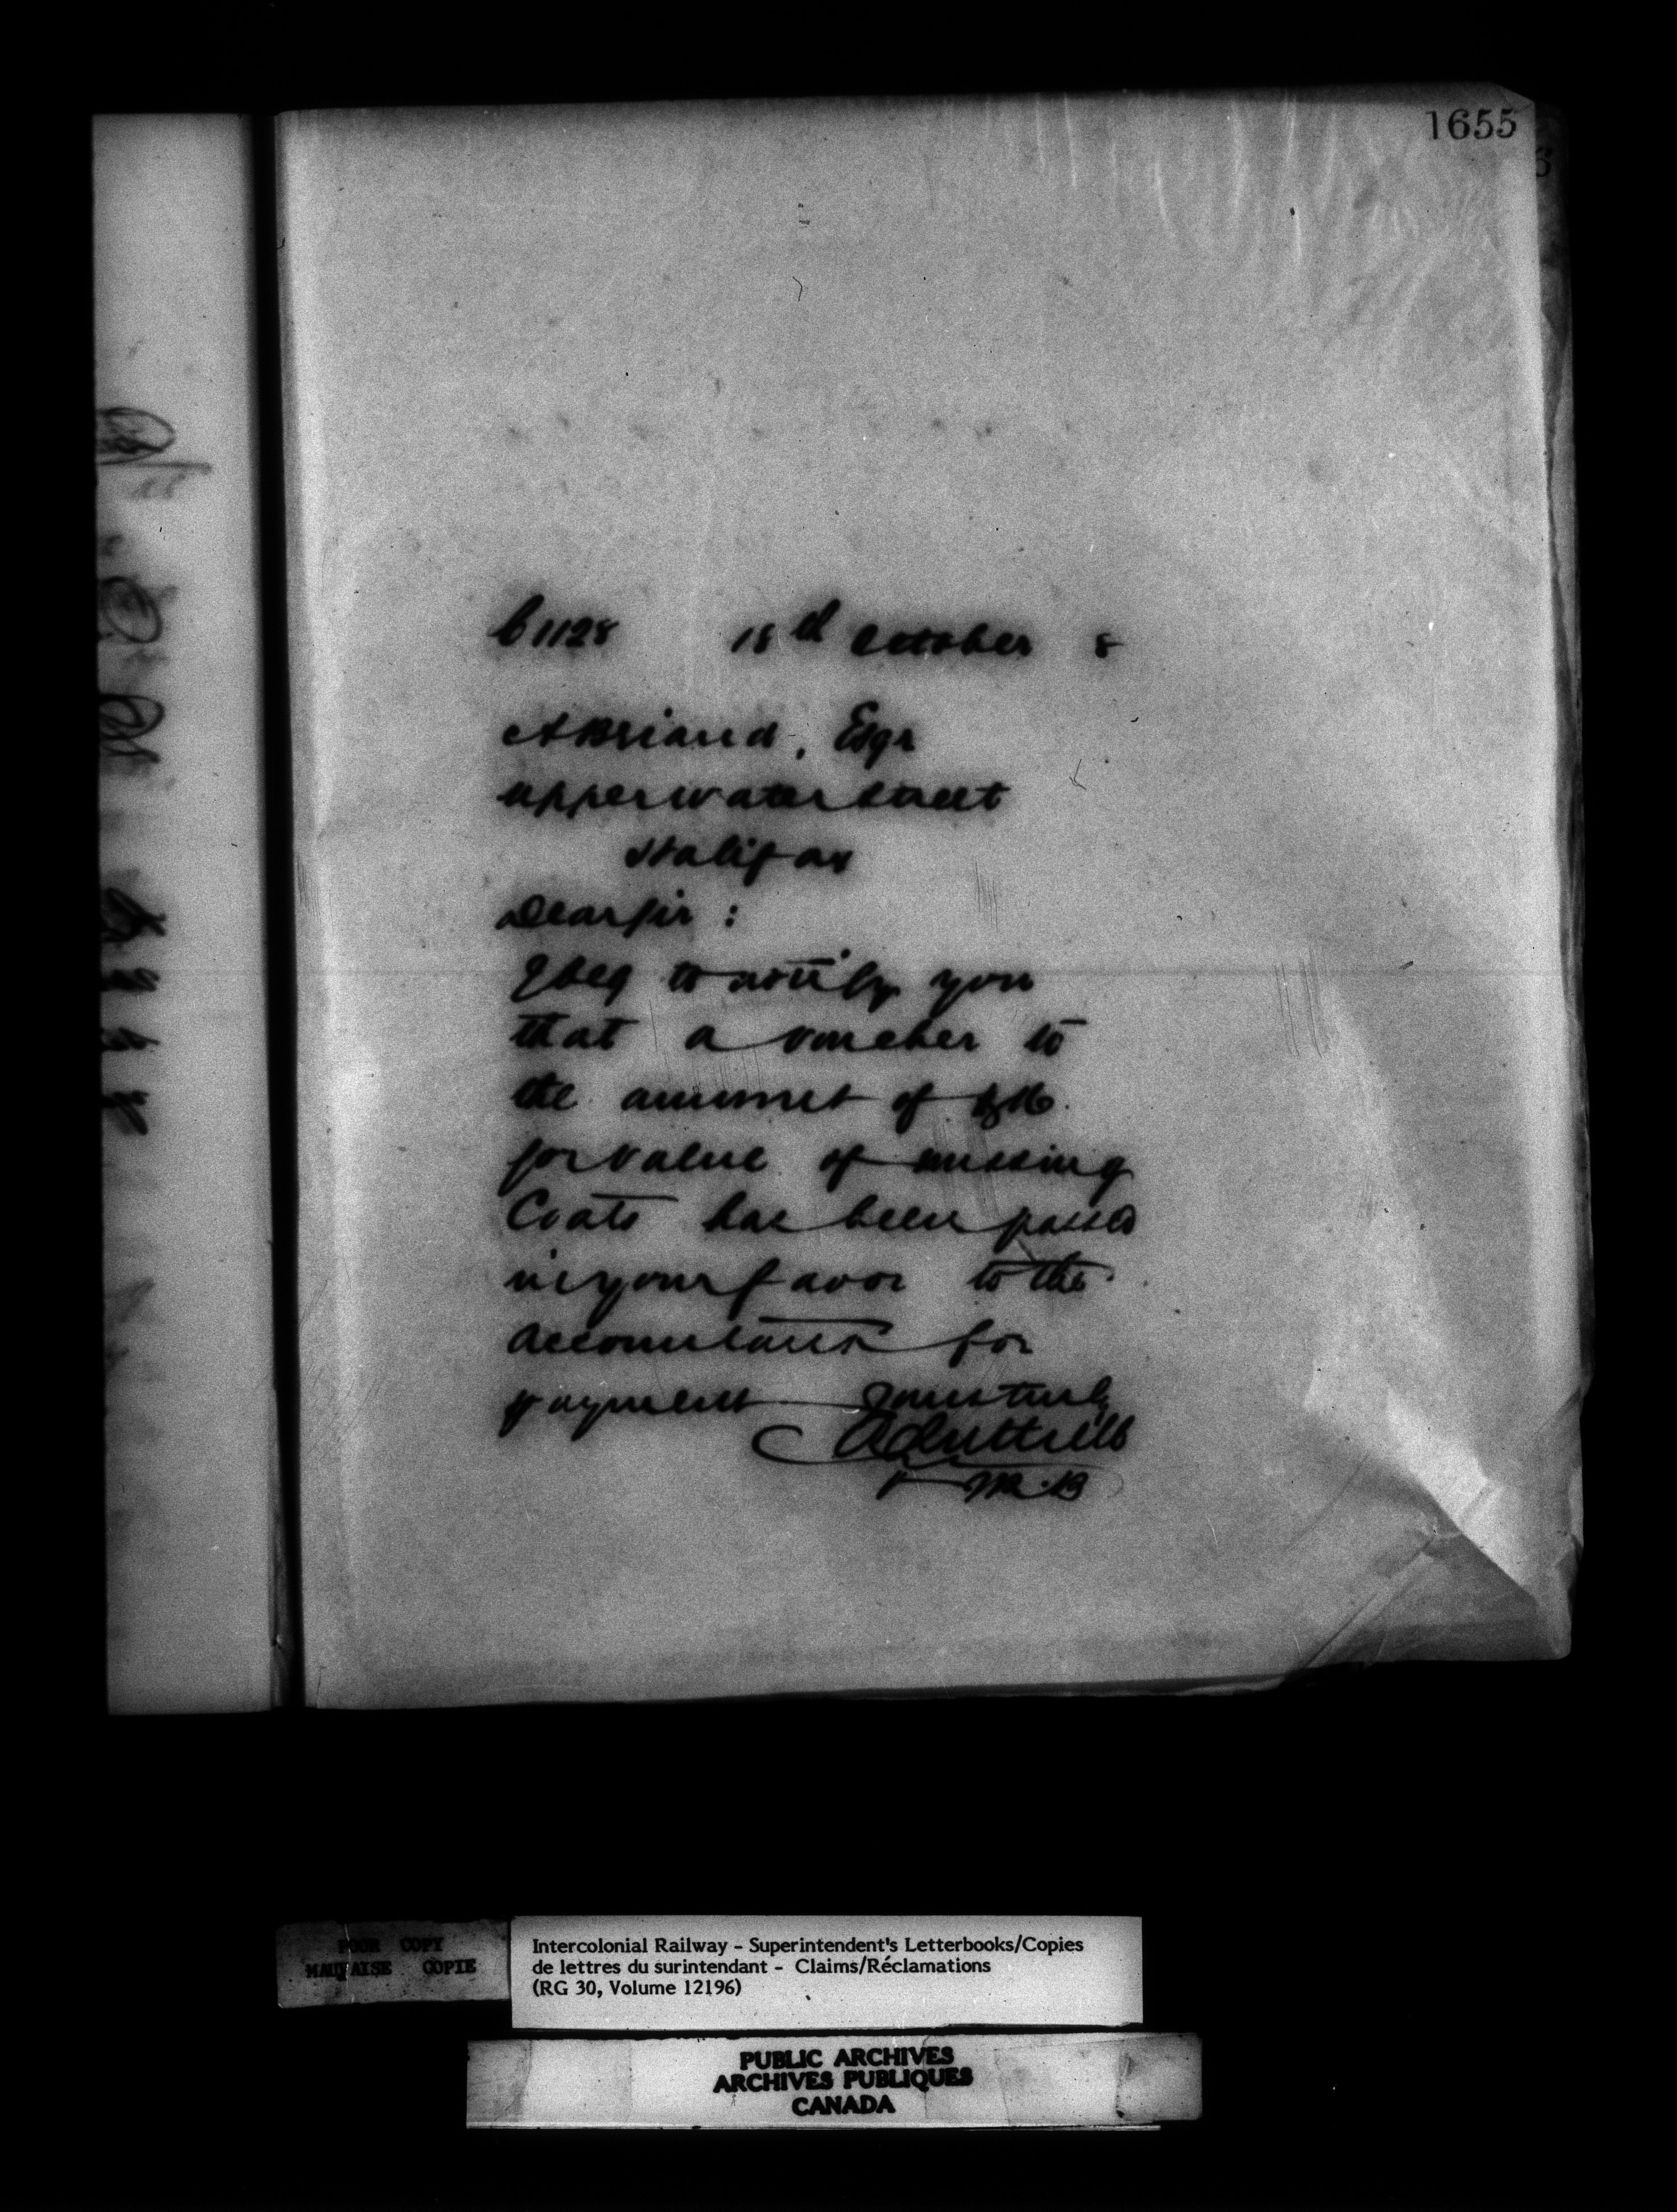 1655
6
C1128 18th October 8
A Briand, Esqr
Upper Water Street
Halifax
Dear Sir :
I beg to notify you
that a voucher to
the amount of $16
for value of missing
Coats has been passed
in your favor to the
Accountant for
payment Yours truly
M.B
POOR COPY
MAUVAISE COPIE
Intercolonial Railway - Superintendent's Letterbooks/Copies
de lettres du surintendant - Claims/Réclamations
(RG 30, Volume 12196)
PUBLIC ARCHIVES
ARCHIVES PUBLIQUES
CANADA